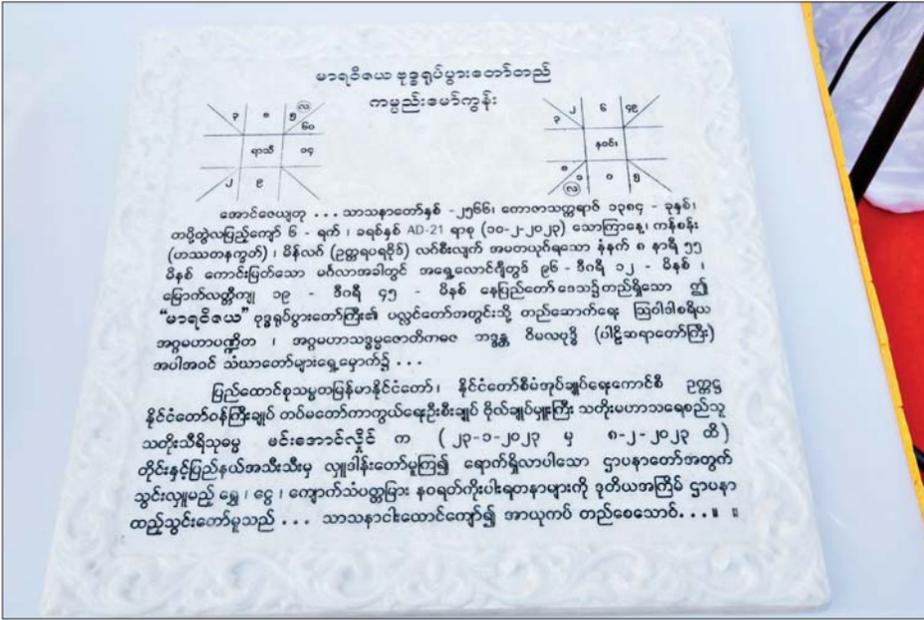 မာရဝိဇယ ဗုဒ္ဓရုပ်ပွားတော်တည်
ကမ္ပည်းမော်ကွန်း
၃ ၈ ၅ လ ၆၀
ရာသီ ၀၄
၂ ၉
၃ ၂ ၆ ၄၉
နဝင်း
၈ ၁ လ ၀ ၅
အောင်ဇေယျတု ... သာသနာတော်နှစ် -၂၅၆၆၊ ကောဇာသက္ကရာဇ် ၁၃၈၄ - ခုနှစ်၊
တပို့တွဲလပြည့်ကျော် ၆ - ရက် ၊ ခရစ်နှစ် AD-21 ရာစု (၁၀-၂-၂၀၂၃) သောကြာနေ့၊ ကန်စန်း
(ဟဿတနက္ခတ်) ၊ မိန်လဂ် (ဥတ္တရပရဗိုဒ်) လဂ်စီးလျက် အမတယုဂ်ရသော နံနက် ၈ နာရီ ၅၅
မိနစ် ကောင်းမြတ်သော မင်္ဂလာအခါတွင် အရှေ့လောင်ဂျီတွဒ် ၉၆ - ဒီဂရီ ၁၂ - မိနစ် ၊
မြောက်လတ္တီကျု ၁၉ - ဒီဂရီ ၄၅ - မိနစ် နေပြည်တော် ဒေသ၌တည်ရှိသော ဤ
“မာရဝိဇယ” ဗုဒ္ဓရုပ်ပွားတော်ကြီး၏ ပလ္လင်တော်အတွင်းသို့ တည်ဆောက်ရေး ဩဝါဒါစရိယ
အဂ္ဂမဟာပဏ္ဍိတ ၊ အဂ္ဂမဟာသဒ္ဓမ္မဇောတိကဓဇ ဘဒ္ဒန္တ ဝိမလဗုဒ္ဓိ (ပါဠိဆရာတော်ကြီး)
အပါအဝင် သံဃာတော်များရှေ့မှောက်၌ ...
ပြည်ထောင်စုသမ္မတမြန်မာနိုင်ငံတော်၊ နိုင်ငံတော်စီမံအုပ်ချုပ်ရေးကောင်စီ ဥက္ကဋ္ဌ
နိုင်ငံတော်ဝန်ကြီးချုပ် တပ်မတော်ကာကွယ်ရေးဦးစီးချုပ် ဗိုလ်ချုပ်မှူးကြီး သတိုးမဟာသရေစည်သူ
သတိုးသီရိသုဓမ္မ မင်းအောင်လှိုင် က ( ၂၃-၁-၂၀၂၃ မှ ၈-၂-၂၀၂၃ ထိ )
တိုင်းနှင့်ပြည်နယ်အသီးသီးမှ လှူဒါန်းတော်မူကြ၍ ရောက်ရှိလာပါသော ဌာပနာတော်အတွက်
သွင်းလှူမည့် ရွှေ ၊ ငွေ ၊ ကျောက်သံပတ္တမြား နဝရတ်ကိုးပါးရတနာများကို ဒုတိယအကြိမ် ဌာပနာ
ထည့်သွင်းတော်မူသည် ... သာသနာငါးထောင်ကျော်၍ အာယုကပ် တည်စေသောဝ်...။ ။